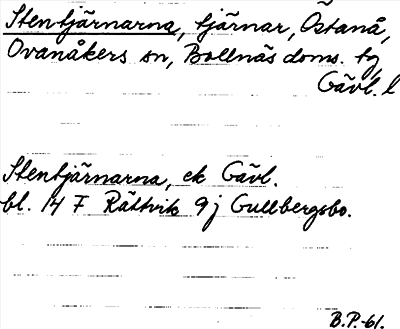 Stentjärnarna, tjärnar, Östanå,
Ovanåkers sn, Bollnäs doms. tg
Gävl. l
Stentjärnarna, ek Gävl.
bl. 14 F Rättvik 9j Gullbergsbo.
B.P.-61.